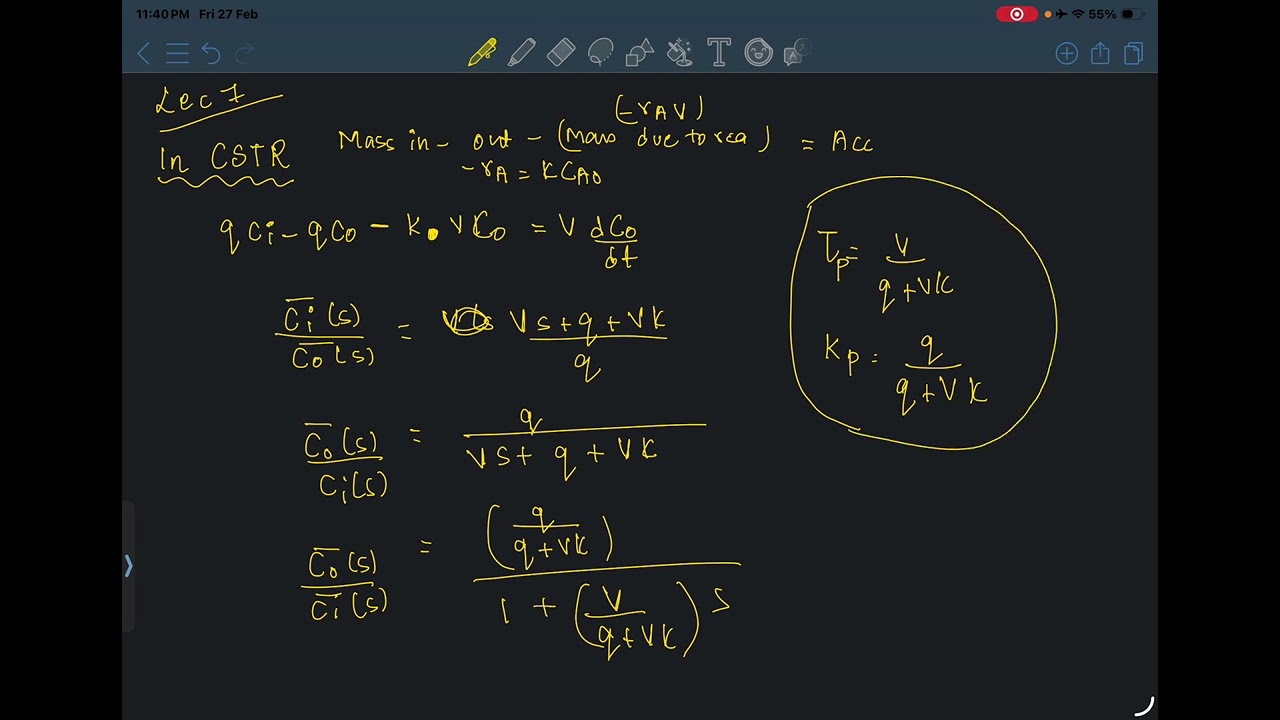 11:40 PM Fri 27 Feb 55%
T
Lec 7
(-rAV)
In CSTR Mass in - out - (Mass due to rea) = Acc
-rA = KCA0
qCi - qCo - K.VCo = V dCo/dt
C̅i(s)/C̅o(s) = Vs + q + VK / q
C̅o(s)/Ci(s) = q / Vs + q + VK
C̅o(s)/C̅i(s) = (q/q+VK) / 1 + (V/q+VK) s
Tp = V/q+VK
Kp = q/q+VK